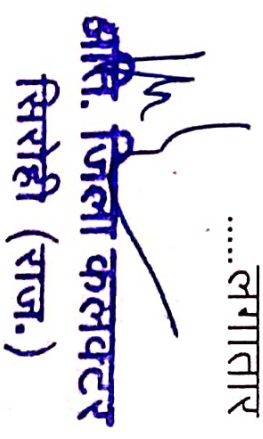 .....लगातार
अति. जिला कलक्टर
सिरोही (राज.)